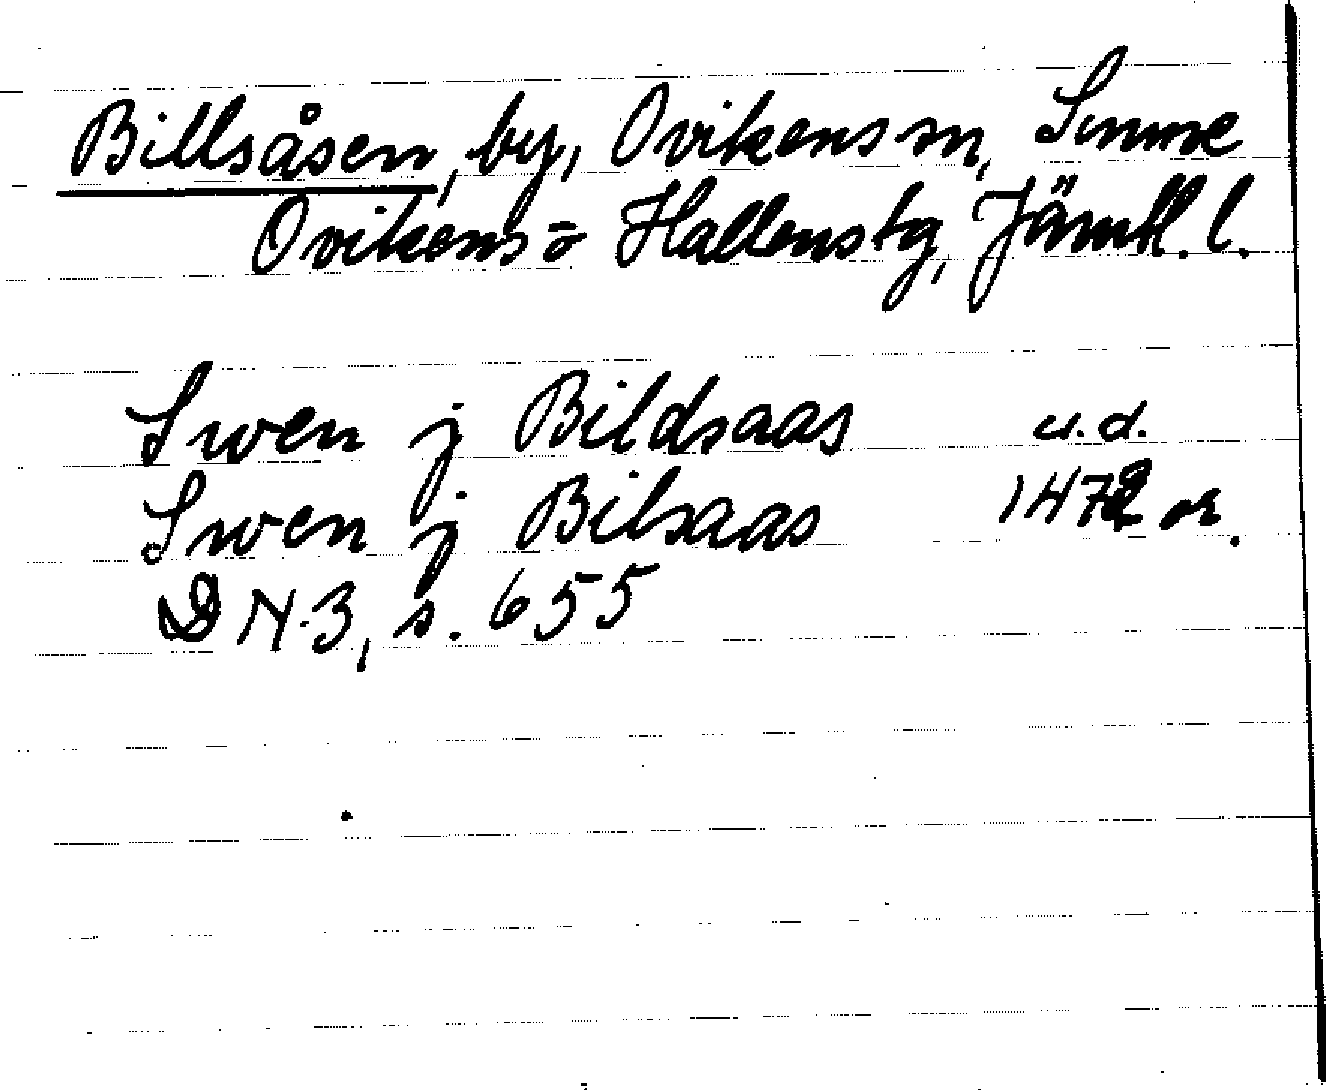 Billsåsen, by, Ovikens sn, Sunne
Ovikens o Hallens tg, Jämtl. l.
Swen j Bildsaas u.d.
Swen j Bilsaas 1472 or.
DN 3, s. 655